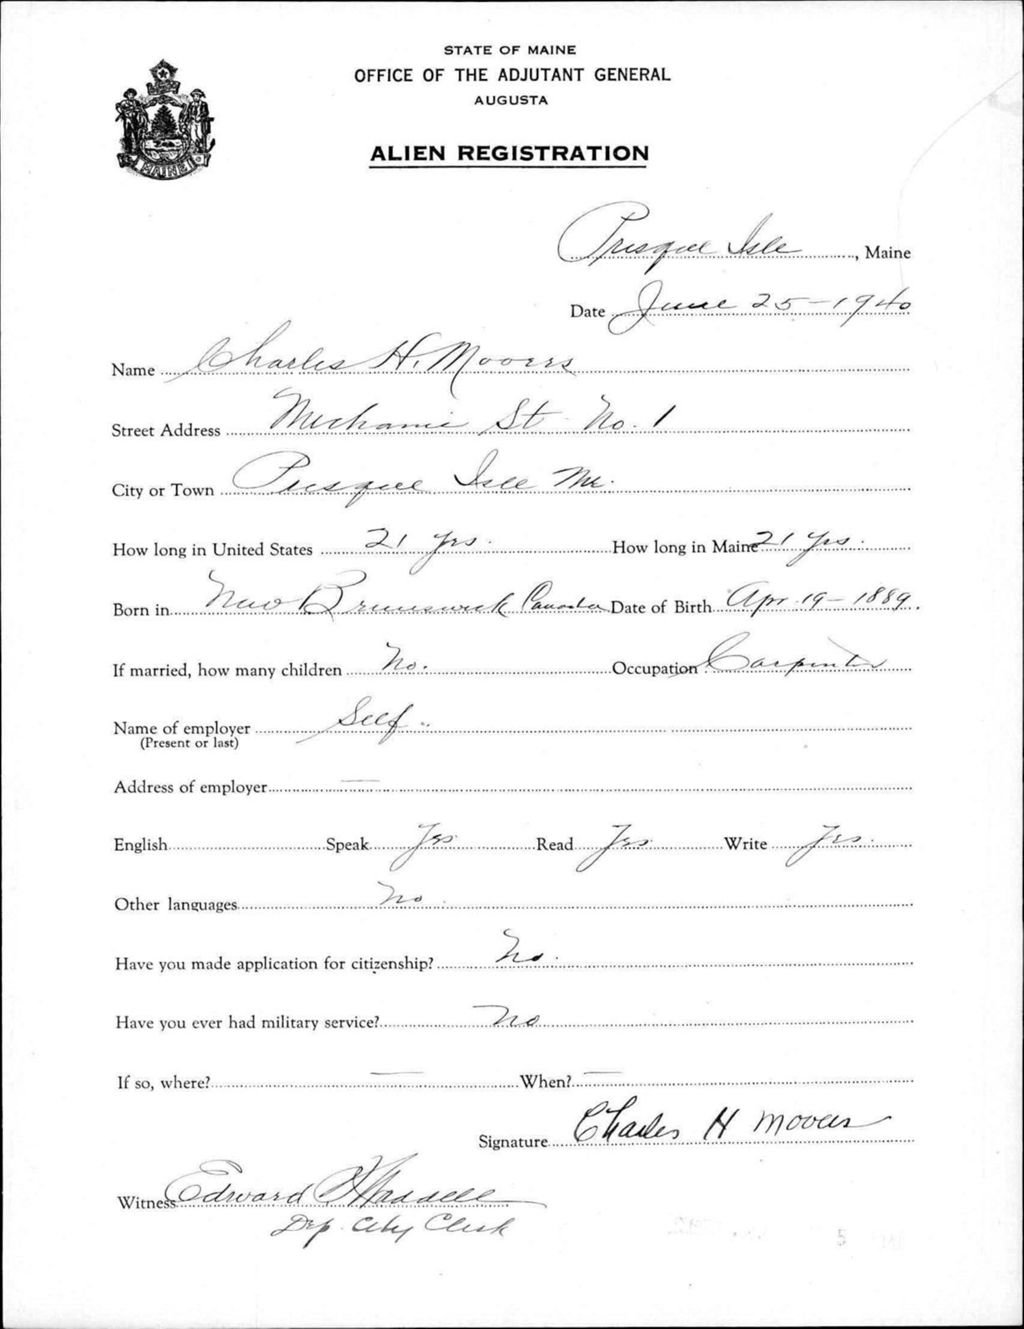 STATE OF MAINE
OFFICE OF THE ADJUTANT GENERAL
AUGUSTA
ALIEN REGISTRATION
MAINE
Presque Isle, Maine
Date June 25-1940
Name Charles H. Moovers
Street Address Mechanic St No. 1
City or Town Presque Isle Me.
How long in United States 21 yrs. How long in Maine 21 yrs.
Born in New Brunswick Canada Date of Birth Apr 19-1889.
If married, how many children No. Occupation Carpenter
Name of employer Self
(Present or last)
Address of employer —
English Speak Yes Read Yes Write Yes.
Other languages No
Have you made application for citizenship? No.
Have you ever had military service? No
If so, where? — When? —
Signature Charles H Moovers
Witness Edward
Dep. City Clerk
5